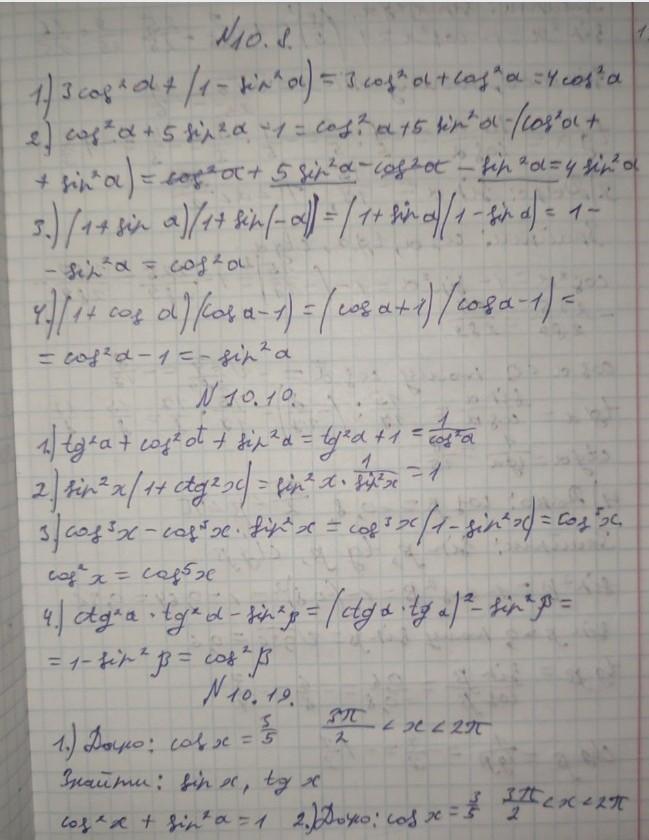 N 10.8.
1.) 3cos²α + (1 - sin²α) = 3cos²α + cos²α = 4cos²α
2.) cos²α + 5 sin²α - 1 = cos²α + 5 sin²α - (cos²α +
+ sin²α) = cos²α + 5 sin²α - cos²α - sin²α = 4 sin²α
3.) (1 + sin α)(1 + sin(-α)) = (1 + sin α)(1 - sin α) = 1 -
- sin²α = cos²α
4.) (1 + cos α)(cos α - 1) = (cos α + 1)(cos α - 1) =
= cos²α - 1 = - sin²α
N 10.10.
1.) tg²α + cos²α + sin²α = tg²α + 1 = 1/cos²α
2.) sin²x(1 + ctg²x) = sin²x · 1/sin²x = 1
3.) cos³x - cos³x · sin²x = cos³x(1 - sin²x) = cos³x
cos²x = cos⁵x
4.) ctg²α · tg²α - sin²β = (ctg α · tg α)² - sin²β =
= 1 - sin²β = cos²β
N 10.19.
1.) Дано: cos x = 3/5 3π/2 < x < 2π
Знайти: sin x, tg x
cos²x + sin²α = 1 2.) Дано: cos x = 3/5 3π/2 < x < 2π